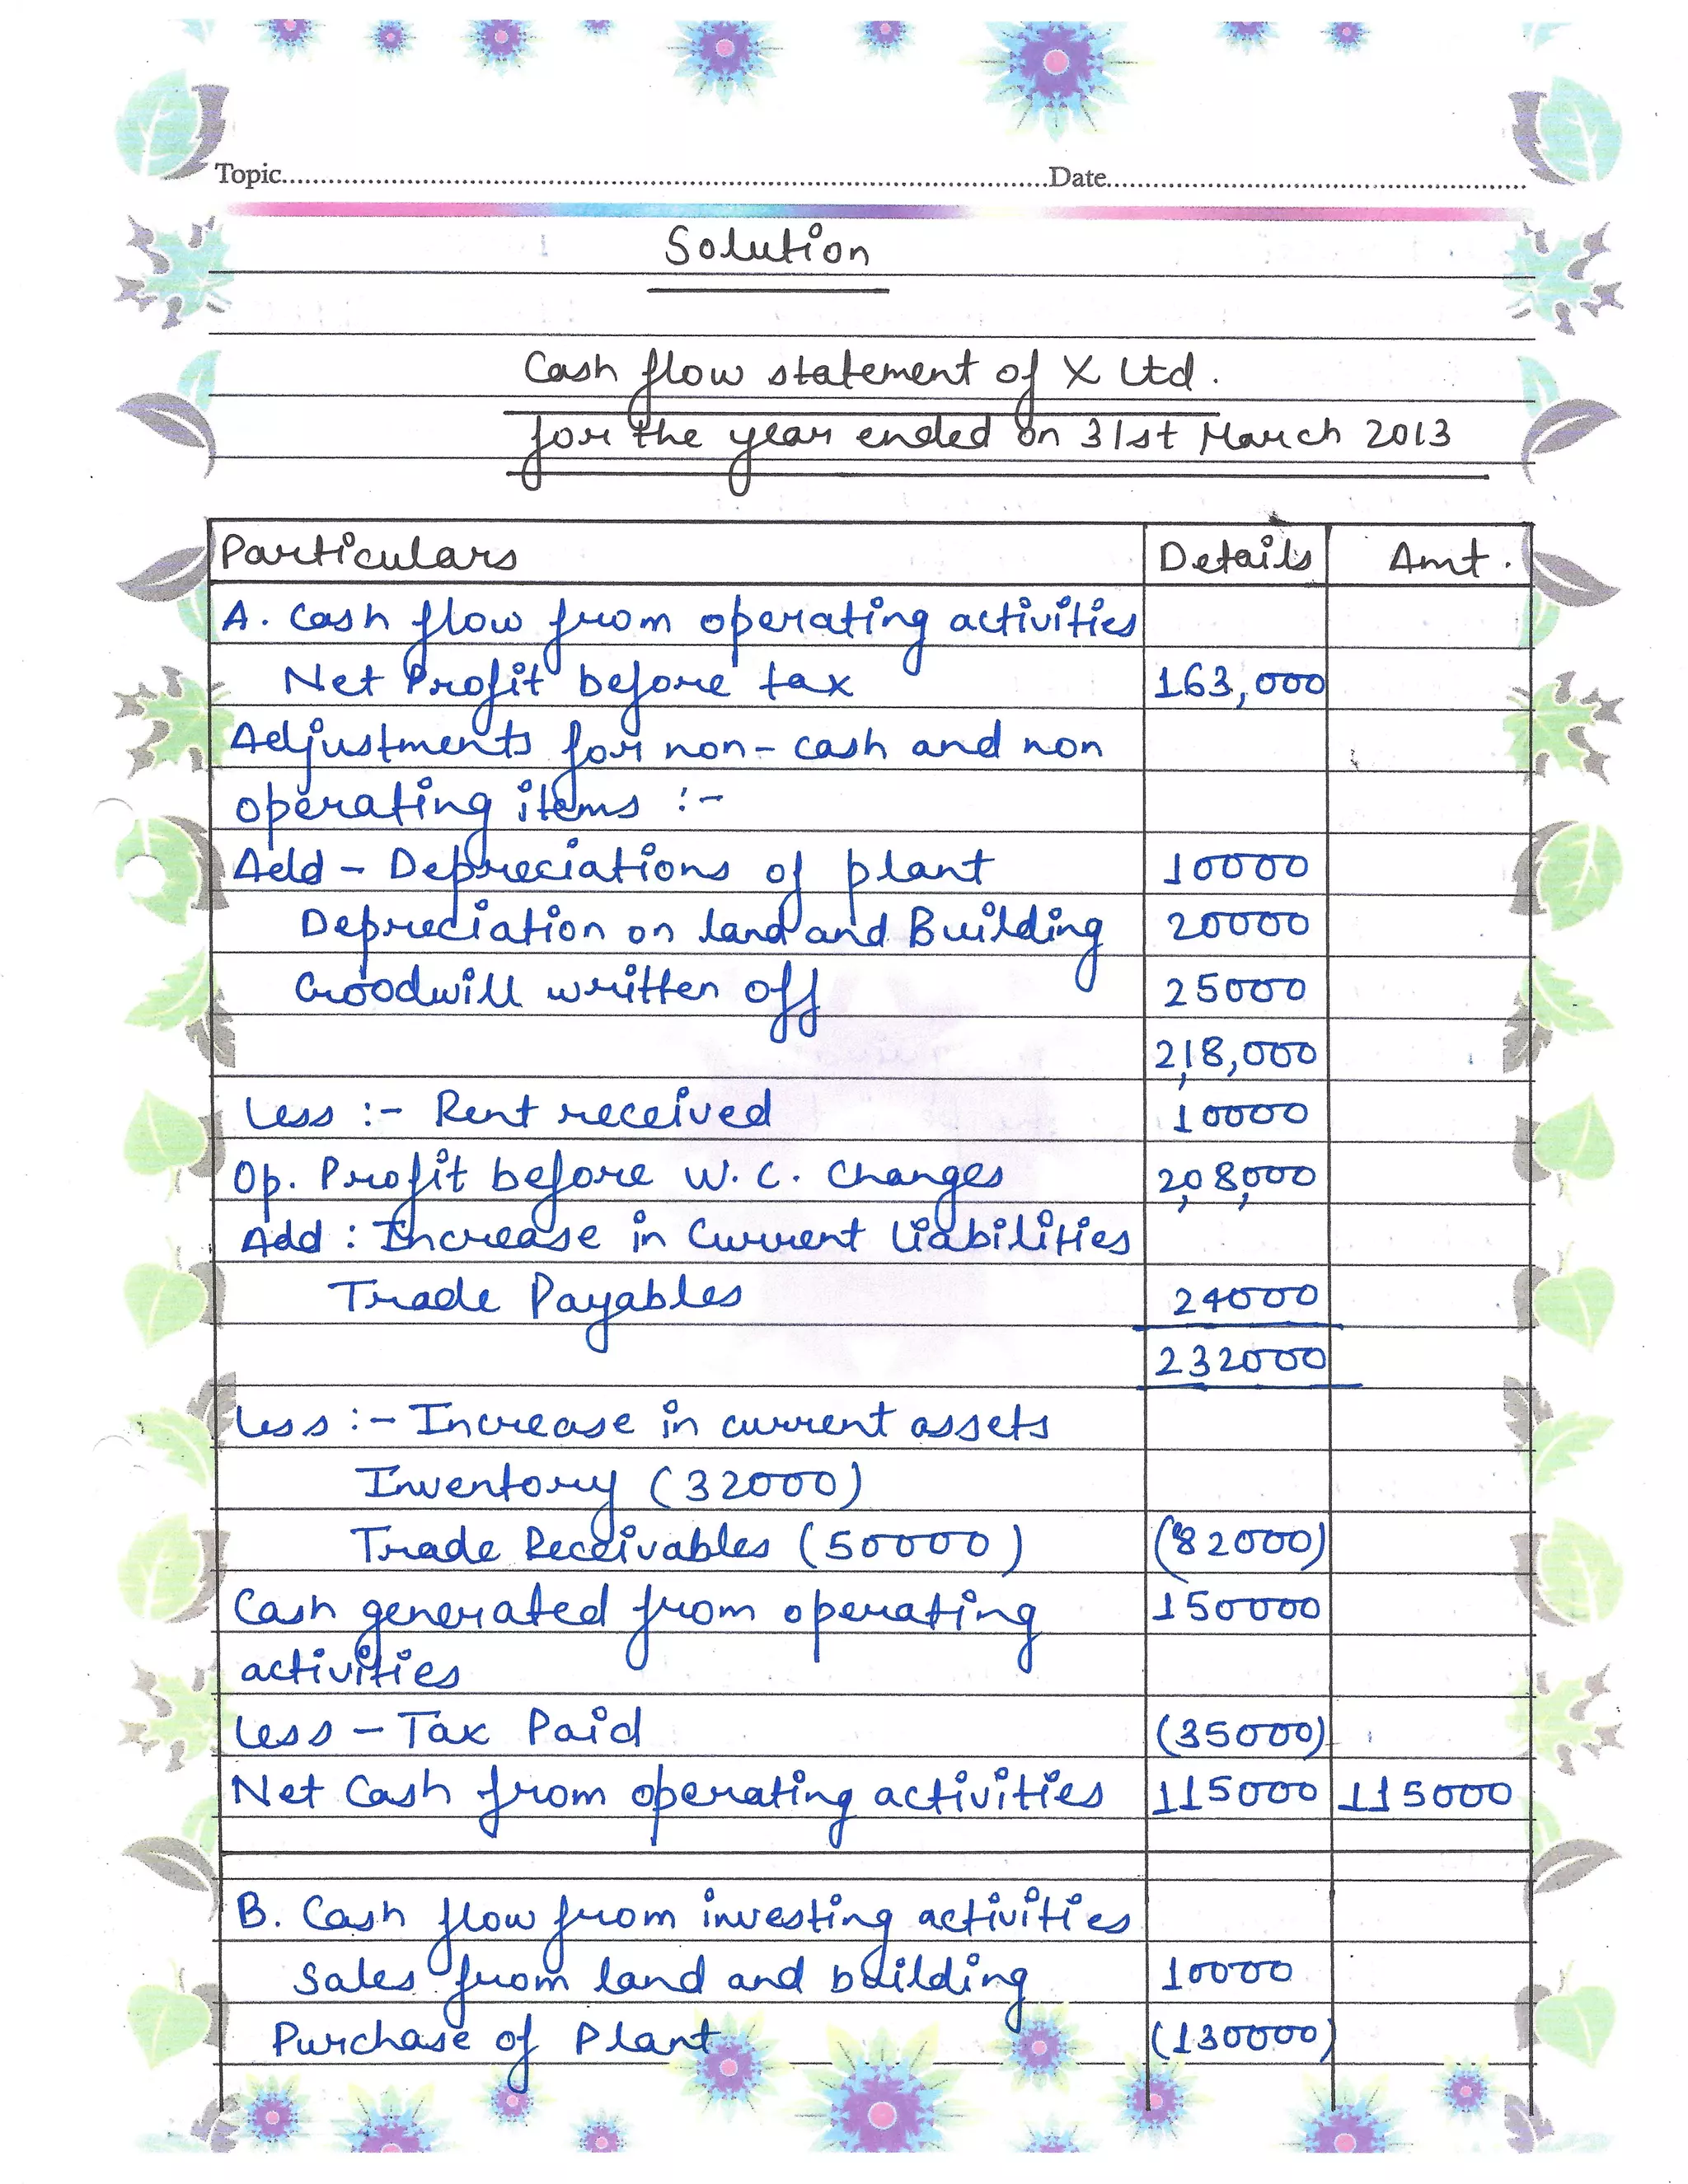 Topic Date
Solution
Cash flow statement of X Ltd.
for the year ended on 31st March 2013
Particulars Details Amt.
A. Cash flow from operating activities
Net Profit before tax 163,000
Adjustments for non-cash and non
operating items :-
Add - Depreciations of plant 10000
Depreciation on land and Building 20000
Goodwill written off 25000
2,18,000
Less :- Rent received 10000
Op. Profit before W.C. Changes 2,08,000
Add : Increase in Current Liabilities
Trade Payables 24000
232000
Less :- Increase in current assets
Inventory (32000)
Trade Receivables (50000) (82000)
Cash generated from operating 150000
activities
Less - Tax Paid (35000)
Net Cash from operating activities 115000 115000
B. Cash flow from investing activities
Sales from land and building 10000
Purchase of Plant (130000)